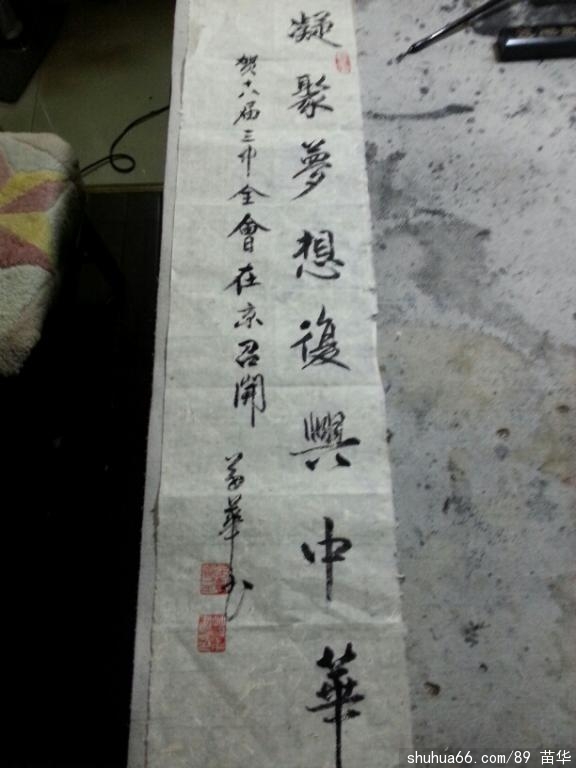 凝聚夢想復興中華
賀十八届三中全會在京召開
苗華书
shuhua66.com/89 苗华